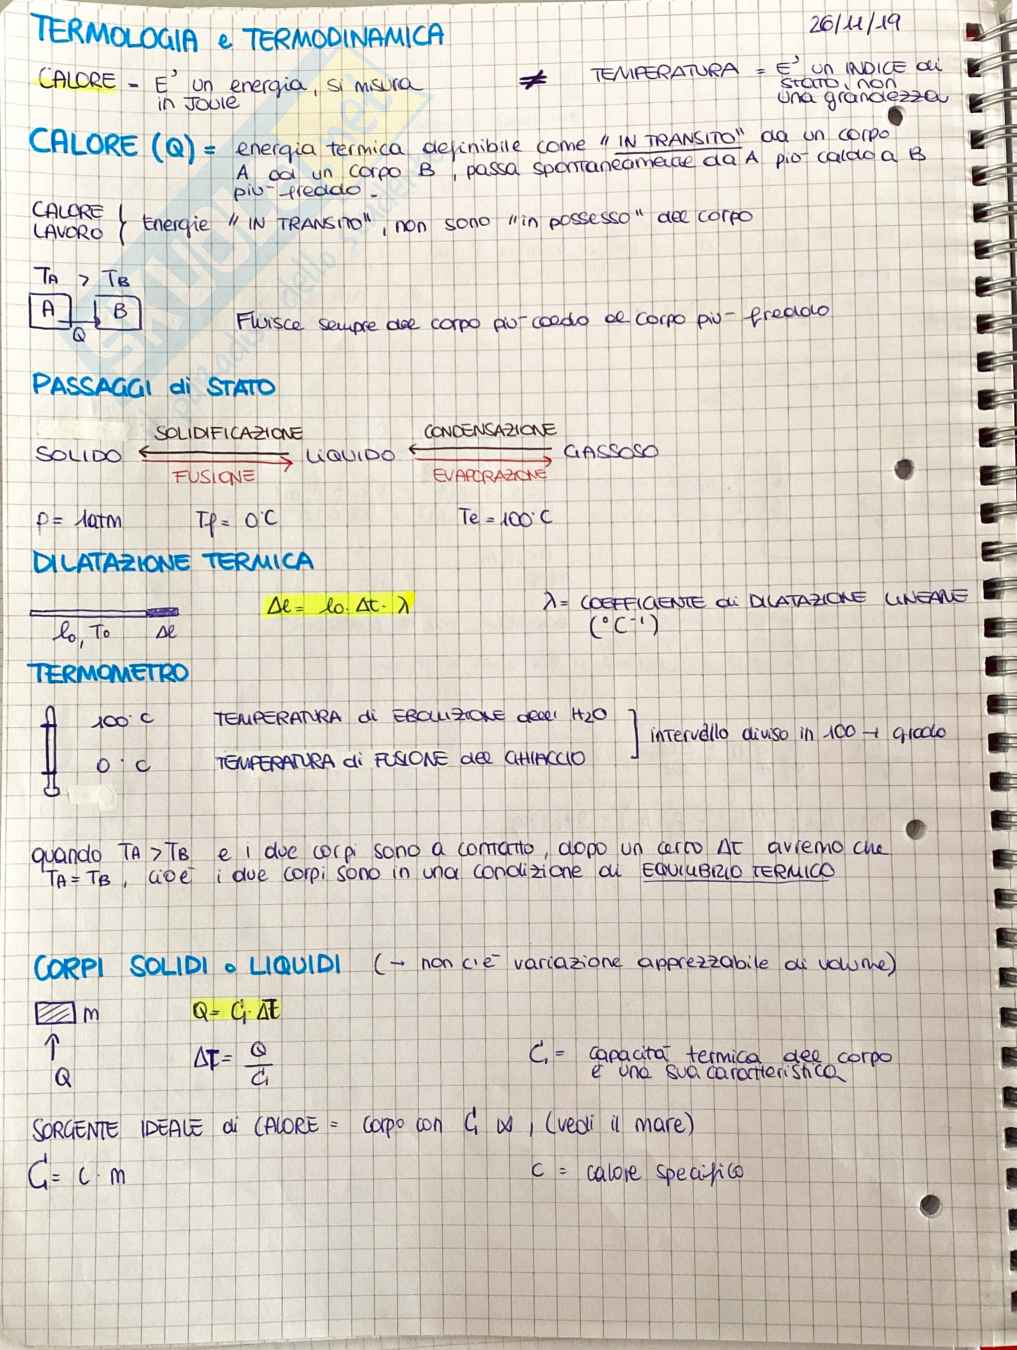 TERMOLOGIA e TERMODINAMICA
26/11/19
CALORE - E' un energia, si misura
in Joule
≠
TEMPERATURA = E' un INDICE di
STATO, non
una grandezza
CALORE (Q) = energia termica definibile come "IN TRANSITO" da un corpo
A ad un corpo B, passa spontaneamente da A più caldo a B
più freddo.
CALORE
LAVORO
Energie "IN TRANSITO", non sono "in possesso" del corpo
TA > TB
A B
Q
Fluisce sempre dal corpo più caldo al corpo più freddo
PASSAGGI di STATO
SOLIDIFICAZIONE CONDENSAZIONE
SOLIDO LIQUIDO GASSOSO
FUSIONE EVAPORAZIONE
p = 1atm Tf = 0°C Te = 100°C
DILATAZIONE TERMICA
Δl = l0 · Δt · λ
λ = COEFFICIENTE di DILATAZIONE LINEARE
(°C⁻¹)
l0, T0 Δl
TERMOMETRO
100°C TEMPERATURA di EBOLLIZIONE dell' H2O
intervallo diviso in 100 → grado
0°C TEMPERATURA di FUSIONE del GHIACCIO
quando TA > TB e i due corpi sono a contatto, dopo un certo Δt avremo che
TA = TB, cioè i due corpi sono in una condizione di EQUILIBRIO TERMICO
CORPI SOLIDI o LIQUIDI (→ non c'è variazione apprezzabile di volume)
m
Q = C · Δt
ΔT = Q
C
Q
C = capacità termica del corpo
è una sua caratteristica
SORGENTE IDEALE di CALORE = corpo con C ∞, (vedi il mare)
C = c · m
c = calore specifico